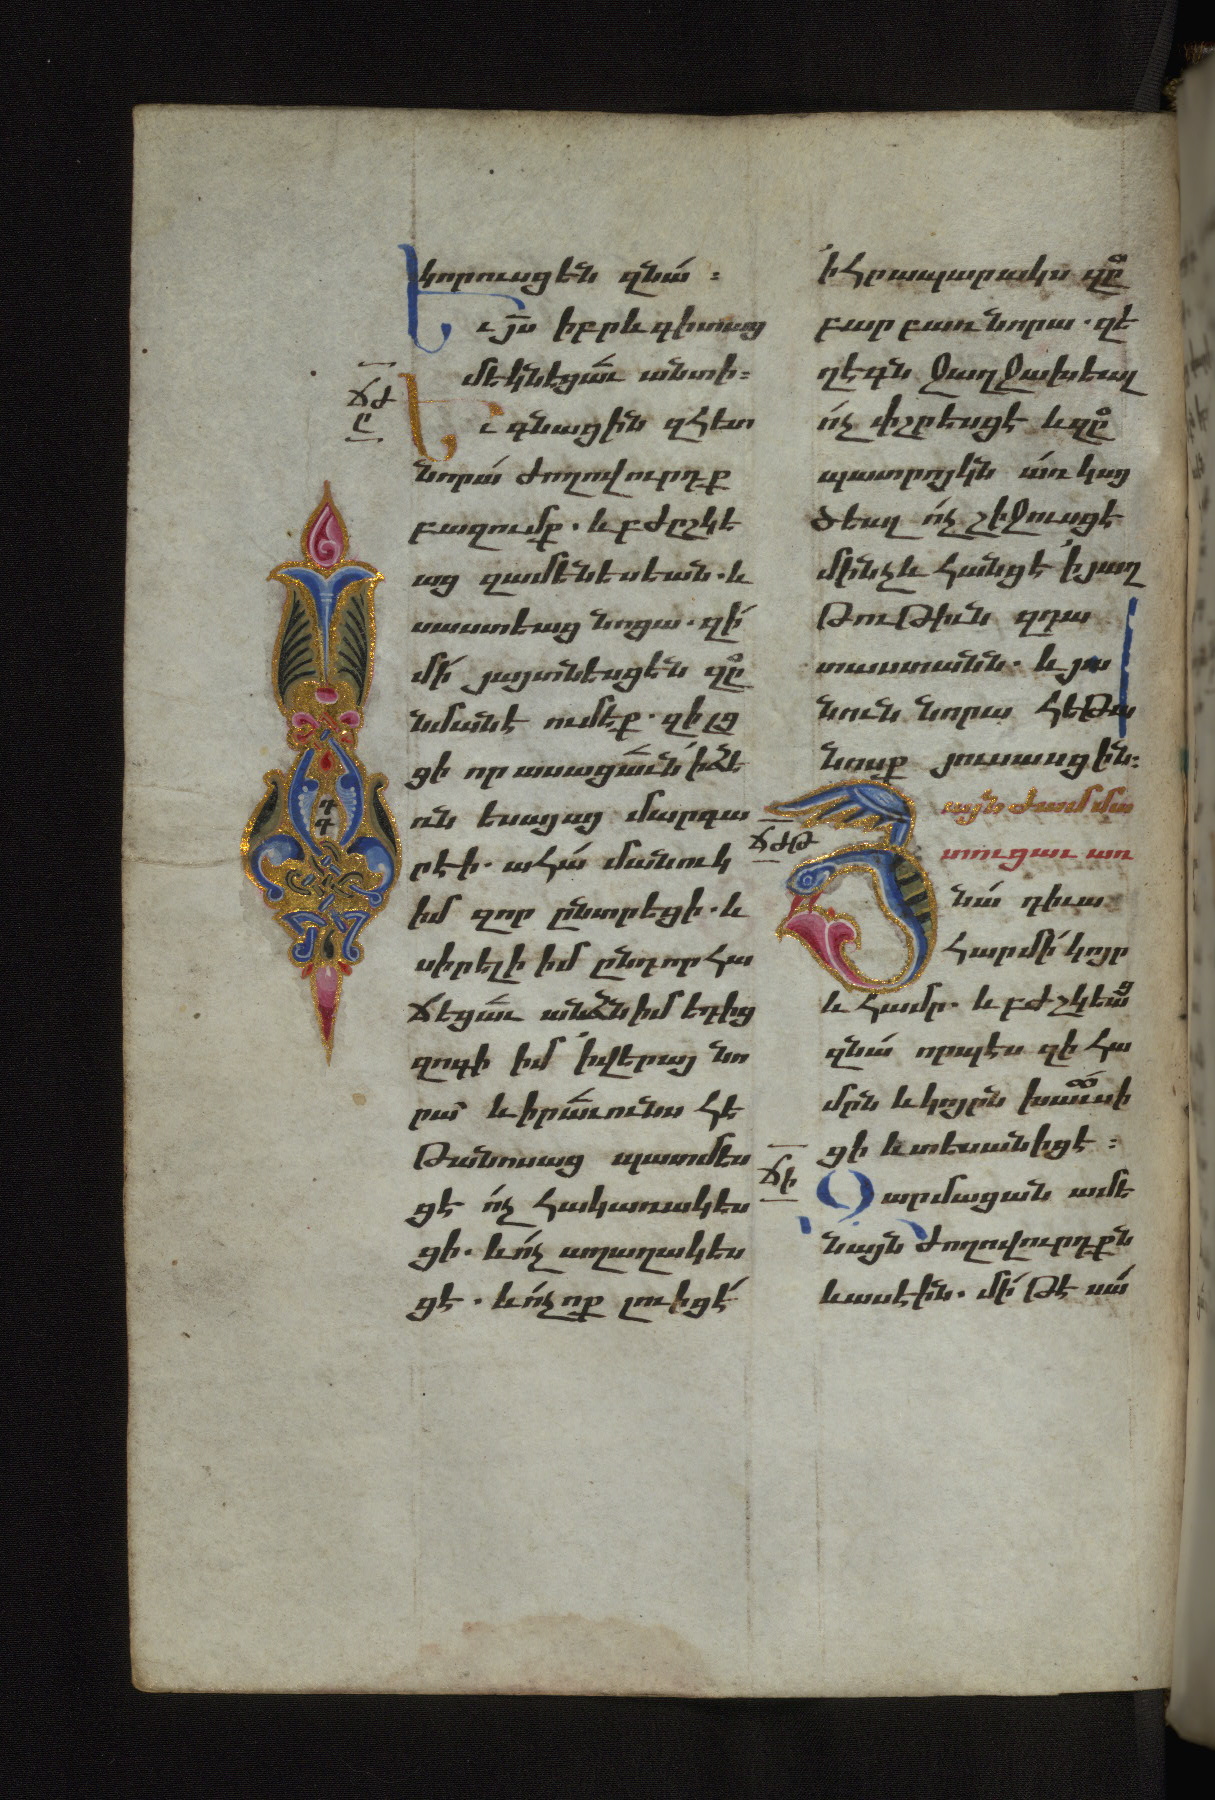 կորուսցեն զնա :
Եւ յս իբրև գիտաց
մեկնեցաւ անտի :
ՃԺ
Ը
Եւ գնացին զհետ
նորա ժողովուրդք
բազումք . և բժըշկե
աց զամենեսեան . և
սաստեաց նոցա . զի
մի յայտնեսցեն զը
նմանէ ումեք . զի լց
ցի որ ասացաւն ի ձե
ռն եսայայ մարգա
րէի . ահա մանուկ
իմ զոր ընտրեցի . և
սիրելի իմ ընդ որ հա
ճեցաւ անձն իմ եդից
զոգի իմ ի վերայ նո
րա և իրաւունս հե
թանոսաց պատմես
ցէ ոչ հակառակես
ցի . և ոչ աղաղակես
ցէ . և ոչ ոք լուիցէ
ի հրապարակս զը
բարբառ նորա . զե
ղեգն ջաղջախեալ
ոչ փշրեսցէ և զը
պատրոյկն առ կայ
ծեալ ոչ շիջուսցէ
մինչև հանցէ ի յաղ
թութիւն զդա
տաստանն . և յա
նուն նորա հեթա
նոսք յուսասցին :
ՃԺԹ
Յայն ժամ մա
տուցաւ առ
նա դիւա
հար մի կոյր
և համր . և բժշկեաց
զնա որպէս զի հա
մըն և կոյրն խաւսի
ցի և տեսանիցէ :
ՃԻ
Զարմացան ամե
նայն ժողովուրդքն
և ասէին . մի թէ սա